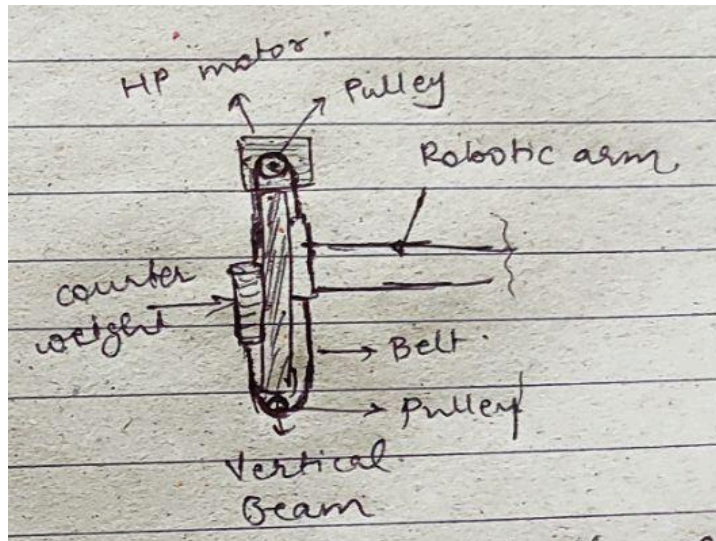 HP motor.
Pulley
Robotic arm
counter
weight
Belt.
Pulley
Vertical
Beam